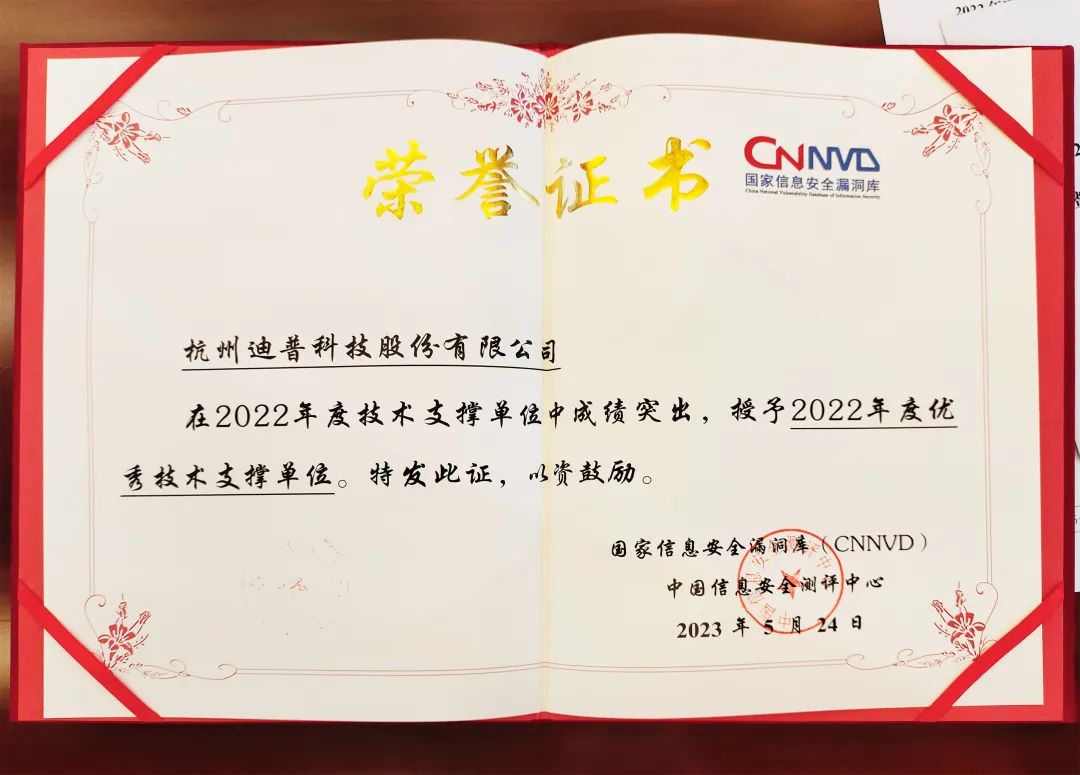 2022年
荣誉证书
CNNVD
国家信息安全漏洞库
China National Vulnerability Database of Information Security
杭州迪普科技股份有限公司
在2022年度技术支撑单位中成绩突出，授予2022年度优
秀技术支撑单位。特发此证，以资鼓励。
国家信息安全漏洞库（CNNVD）
中国信息安全测评中心
2023 年 5 月 24 日